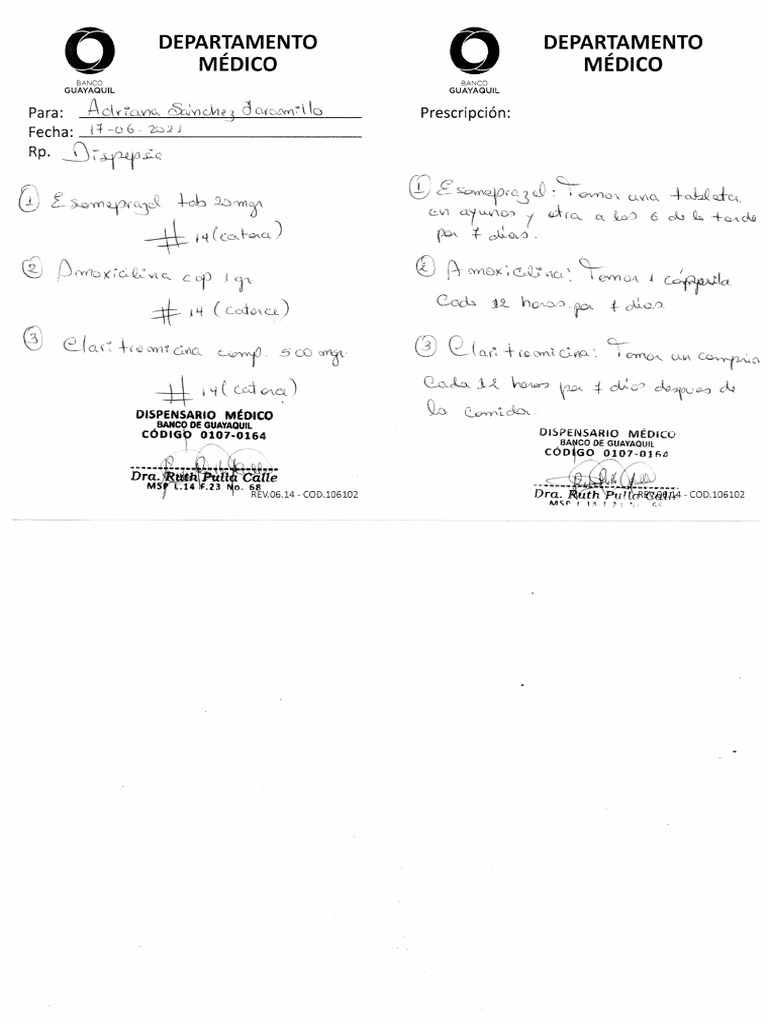 DEPARTAMENTO
MÉDICO
BANCO
GUAYAQUIL
Para: Adriana Sánchez Jaramillo
Fecha: 17-06-2021
Rp. Dispepsia
① Esomeprazol tab 20mgr
# 14 (catorce)
② Amoxicilina cap 1gr
# 14 (catorce)
③ Claritromicina comp. 500 mgr
# 14 (catorce)
DISPENSARIO MÉDICO
BANCO DE GUAYAQUIL
CÓDIGO 0107-0164
Dra. Ruth Pulla Calle
MSP L.14 F.23 No. 68
REV.06.14 - COD.106102
DEPARTAMENTO
MÉDICO
BANCO
GUAYAQUIL
Prescripción:
① Esomeprazol: Tomar una tableta
en ayunos y otra a las 6 de la tarde
por 7 días.
② Amoxicilina: Tomar 1 cápsula
Cada 12 horas por 7 días.
③ Claritromicina: Tomar un comprim
Cada 12 horas por 7 días despues de
la comida.
DISPENSARIO MÉDICO
BANCO DE GUAYAQUIL
CÓDIGO 0107-0164
Dra. Ruth Pulla Calle
REV.06.14 - COD.106102
MSP L.14 F.23 No. 68